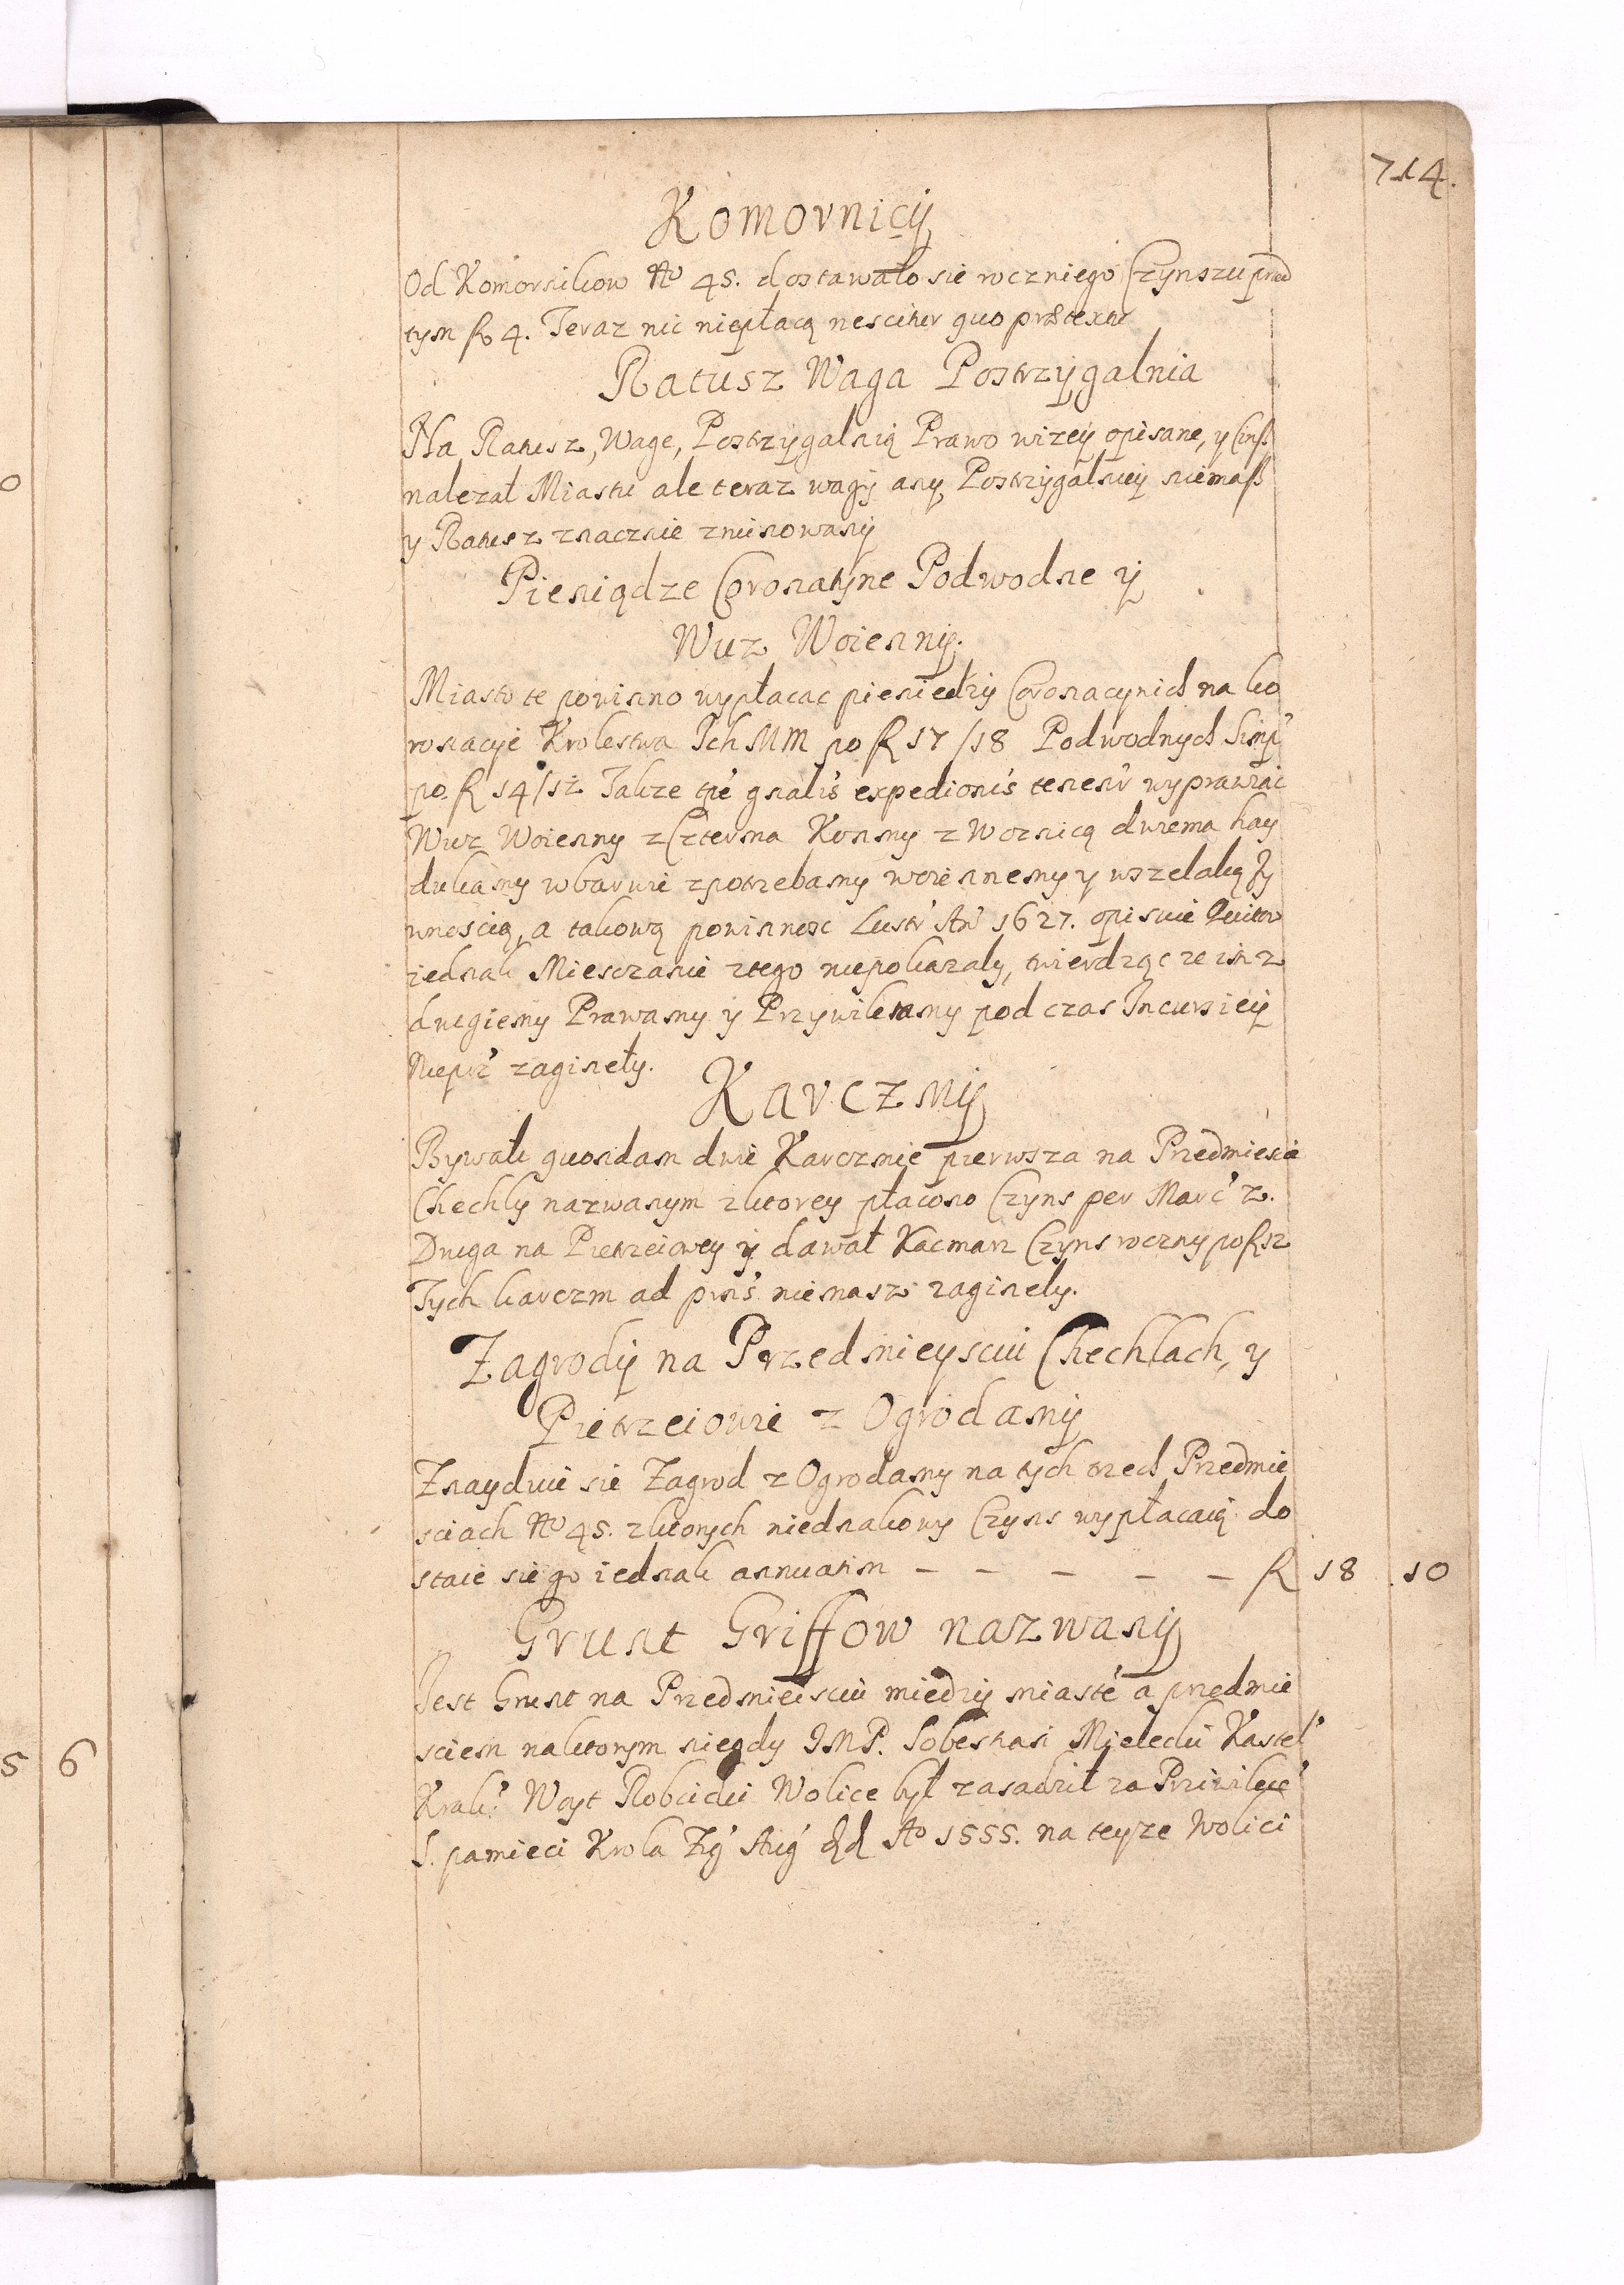 714.
Komornicy
Od Komornikow No 45. dostawało sie roczniego Czynszu przed
tym fl 4. Teraz nic niepłacą nescitur quo prætextu
Ratusz Waga Postrzygalnia
Na Ratusz, Wage, Postrzygalnią Prawo wizey opisane, y Czinß
nalezał Miastu ale teraz wagy any Postrzygalniey niemaß
y Ratusz znacznie zruinowany
Pieniądze Coronatyne Podwodne y
Wuz Woienny.
Miasto te powinno wypłacac pieniedzy Coronacynich na ko
ronacyie Krolestwa Ich MM po fl 17/18 Podwodnych
po fl 14/12 Takze gnalis expedionis wyprawiac
Wuz Woienny z Czterma Konmy z Woznicą dwiema hay
dukamy wbarwie zpotrzebamy woiennemy y wszelaką Zy
wnoscią, a takową powinnosc Lustr An 1627. opisuie Quitow
iednak Miesczanie ztego niepokazaly, twierdząc ze im z
drugiemy Prawamy y Przywileiamy pod czas Incursiey
Niepr zagineły.
Karczmy
Bywały quondam dwie Karczmie pierwsza na Przedmiesciu
Chechly nazwanym zktorey płacono Czyns per Marc 2.
Druga na Pietrzeiowey y dawał Kacmarz Czyns roczny po fl 12
Tych karczm ad prns niemasz zaginely.
Zagrody na Przedmieysciu Chechlach, y
Pietrzeiowie z Ogrodamy
Znayduie sie Zagrod z Ogrodamy na tych trzech Przedmie
sciach No 45. zktorych niednakowy Czyns wypłacaią do
staie sie go iednak annuatim – – – – – fl 18 10
Grunt Griffow nazwany
Jest Grunt na Przedmieisciu miedzy miaste a przedmie
sciem naktorym niegdy IMP. Sobestian Mielecki Kastel
Krak. Woyt Robcicki Wolice był zasadził za Priwileie
S. pamieci Krola Zig Aug dd Ao 1555. na teyze Wolici
0
5 6